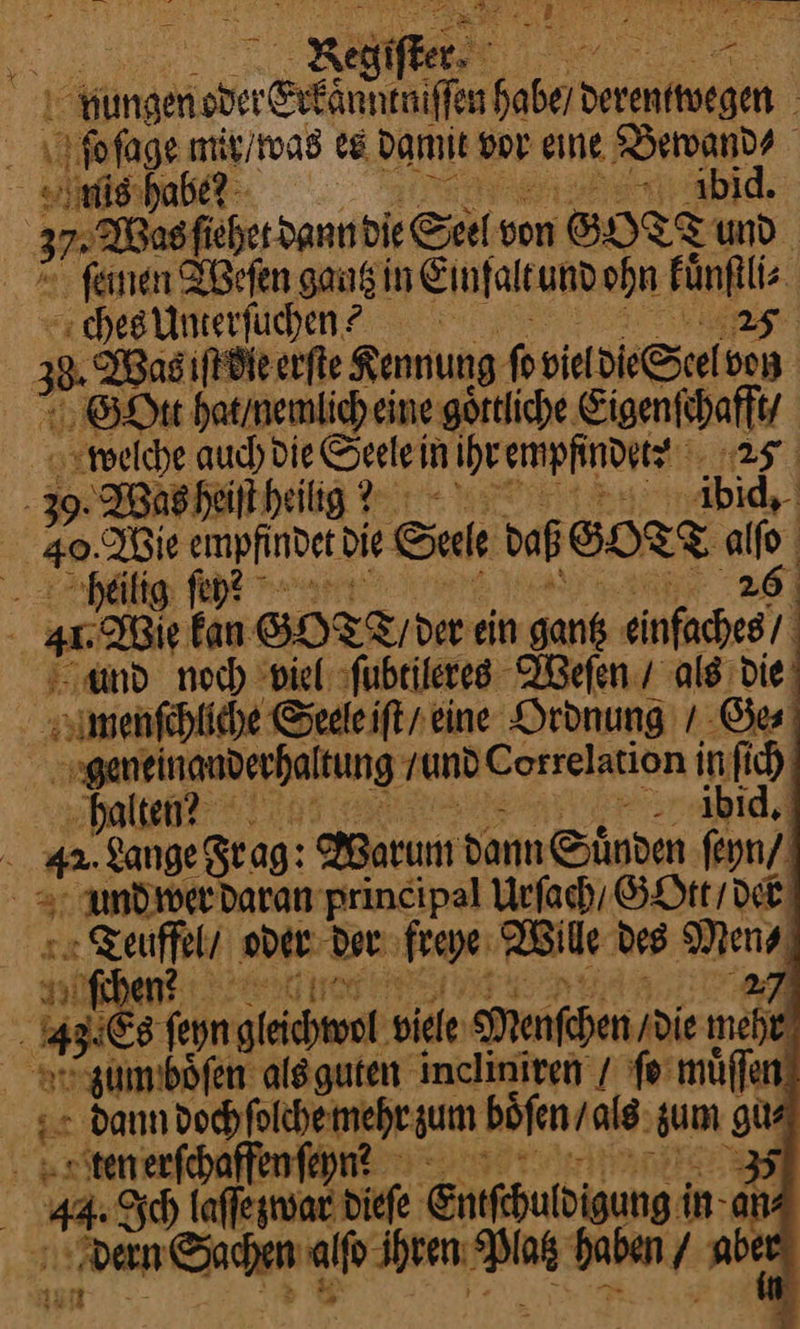 Regiſter.
nungen oder Erkaͤnntniſſen habe/ derentwegen
ſo ſage mir/ was es damit vor eine Bewand⸗
nis habe? ibid.
37. Was ſiehet dann die Seel von GOTT und
ſeinen Weſen gantz in Einfalt und ohn kuͤnſtli⸗
ches Unterſuchen? 25
38. Was iſt die erſte Kennung ſo viel die Seel von
GOtt hat/ nemlich eine goͤttliche Eigenſchafft/
welche auch die Seele in ihr empfindet? 25
39. Was heiſt heilig? ibid.
40. Wie empfindet die Seele daß GOTT alſo
heilig ſey? 26
41. Wie kan GOTT/ der ein gantz einfaches/
und noch viel ſubtileres Weſen / als die
menſchliche Seele iſt/ eine Ordnung / Ge⸗
geneinanderhaltung / und Correlation in ſich
halten? ibid.
42. Lange Frag: Warum dann Suͤnden ſeyn/
und wer daran principal Urſach/ GOtt / der
Teuffel/ oder der freye Wille des Men⸗
ſchen? 27
43. Es ſeyn gleichwol viele Menſchen / die mehr
zum boͤſen als guten incliniren / ſo muͤſſen
dann doch ſolche mehr zum boͤſen / als zum gu⸗
ten erſchaffen ſeyn? 35
44. Ich laſſe zwar dieſe Entſchuldigung in an⸗
dern Sachen alſo ihren Platz haben / aber
in